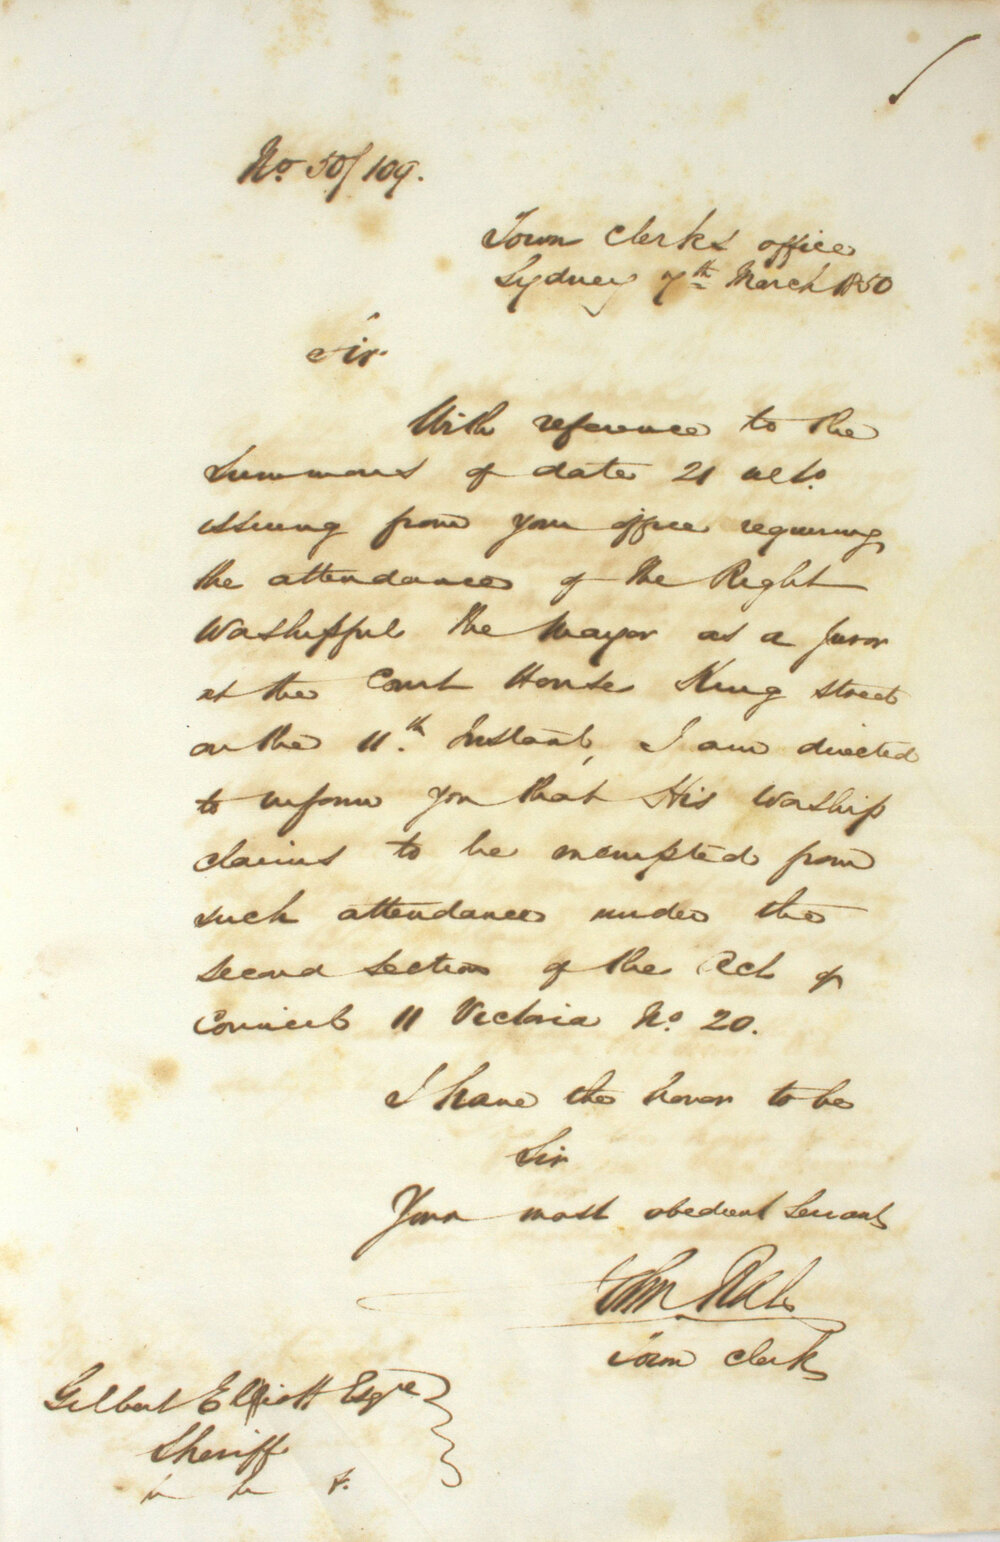 No. 50/109.
Town Clerks office
Sydney 7th March 1850
Sir
With reference to the
Summons of date 21 ulto.
issuing from your office requiring
the attendance of the Right
Worshipful the Mayor as a Juror
at the Court House King Street
on the 11th. Instant, I am directed
to inform you that His Worship
claims to be exempted from
such attendance under the
second section of the Act of
Council 11 Victoria No. 20.
I have the honor to be
Sir
Your most obedient Servant
Town Clerk
Gilbert Elliott Esqre
Sheriff